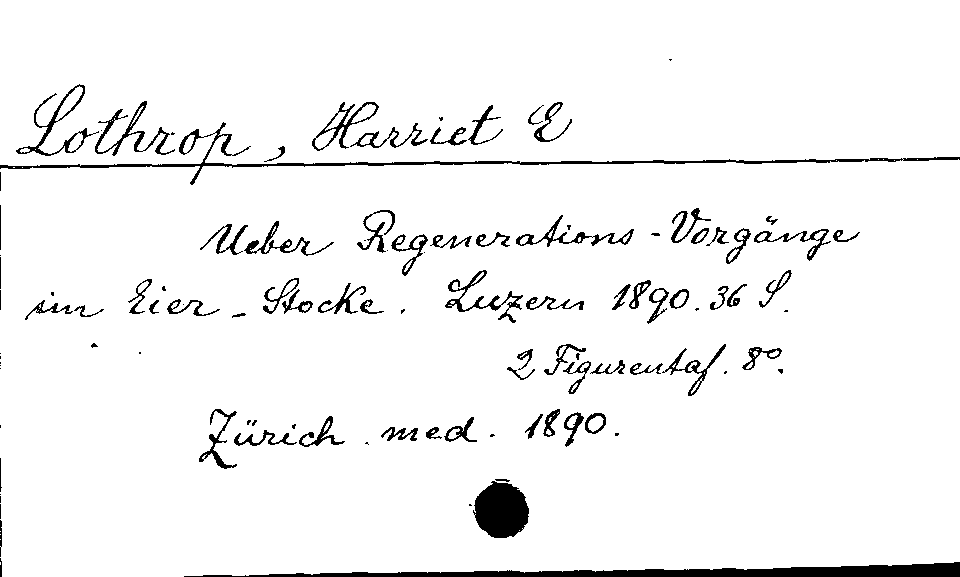 Lothrop, Harriet E
Ueber Regenerations-Vorgänge
im Eier-Stocke. Luzern 1890. 36 S.
2 Figurentaf. 8°.
Zürich. med. 1890.